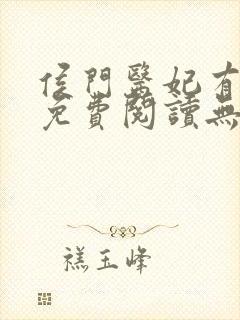 侯門醫妃有
免費閱讀無
禚玉峰